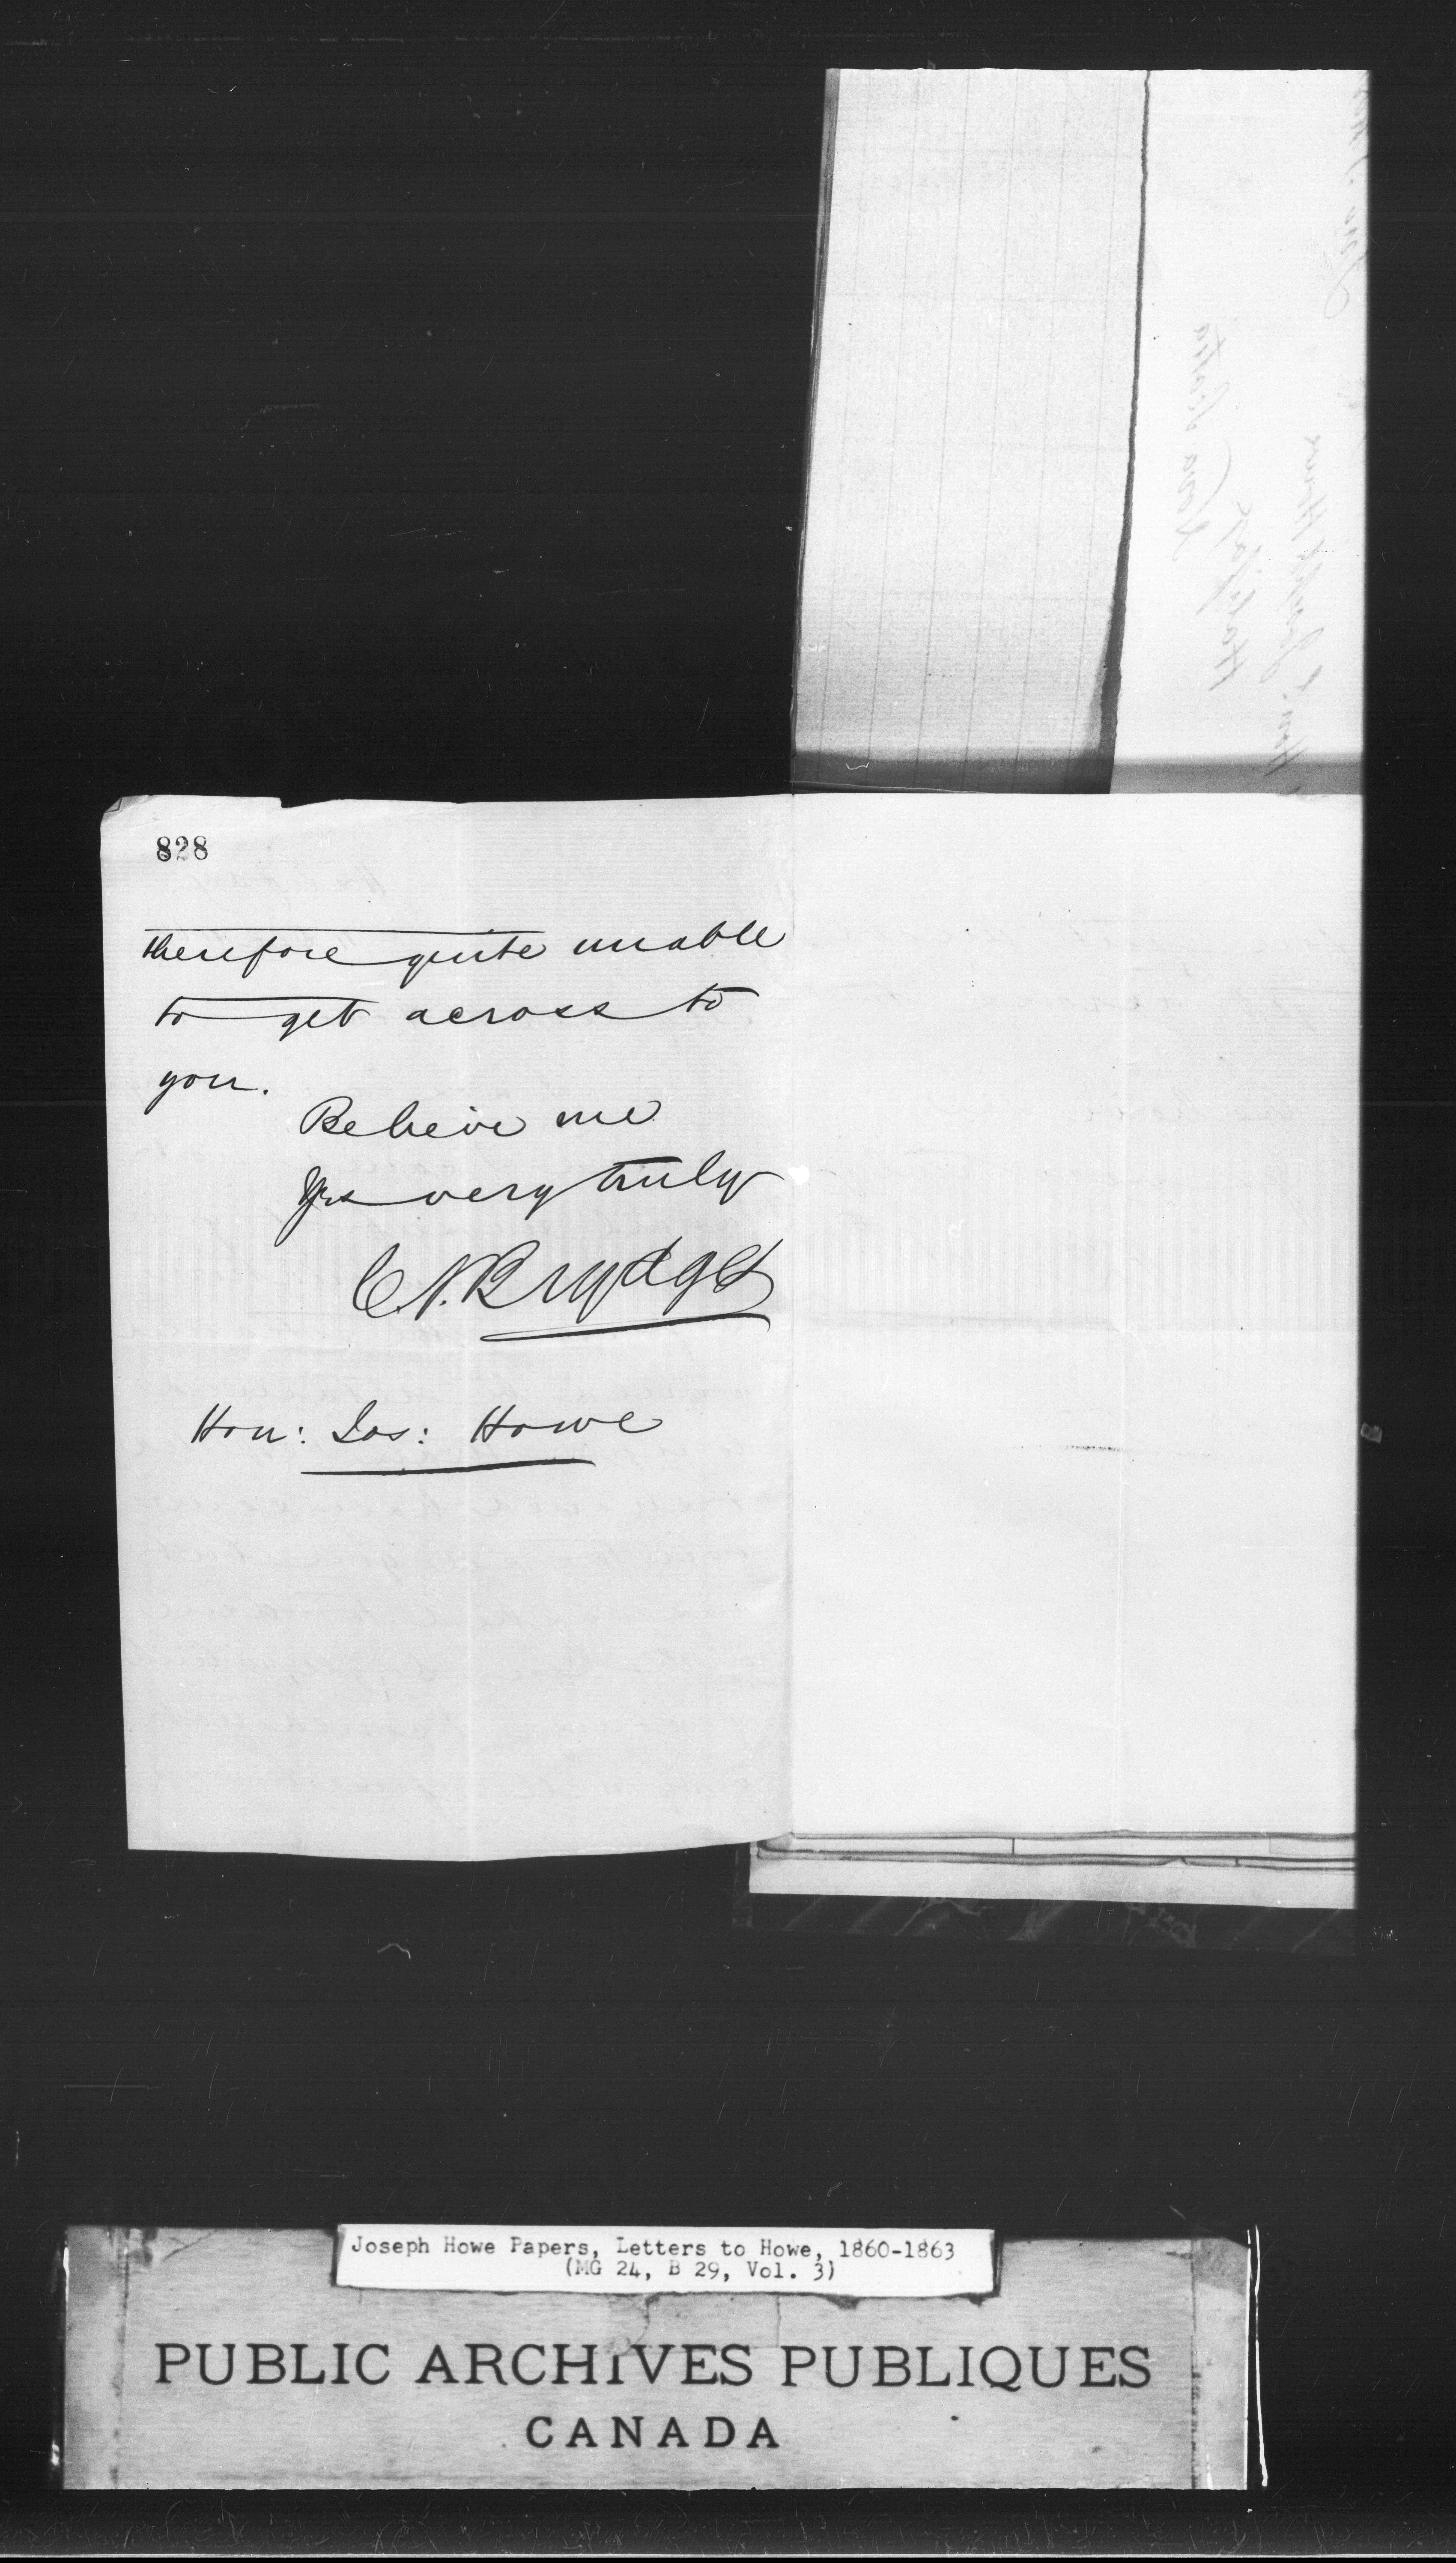 828
therefore quite unable
to get across to
you.
Believe me
Yrs very truly
C. J. Brydges
Hon: Jos: Howe
Nova Scotia
Halifax
Joseph Howe
Joseph Howe Papers, Letters to Howe, 1860-1863
(MG 24, B 29, Vol. 3)
PUBLIC ARCHIVES PUBLIQUES
CANADA